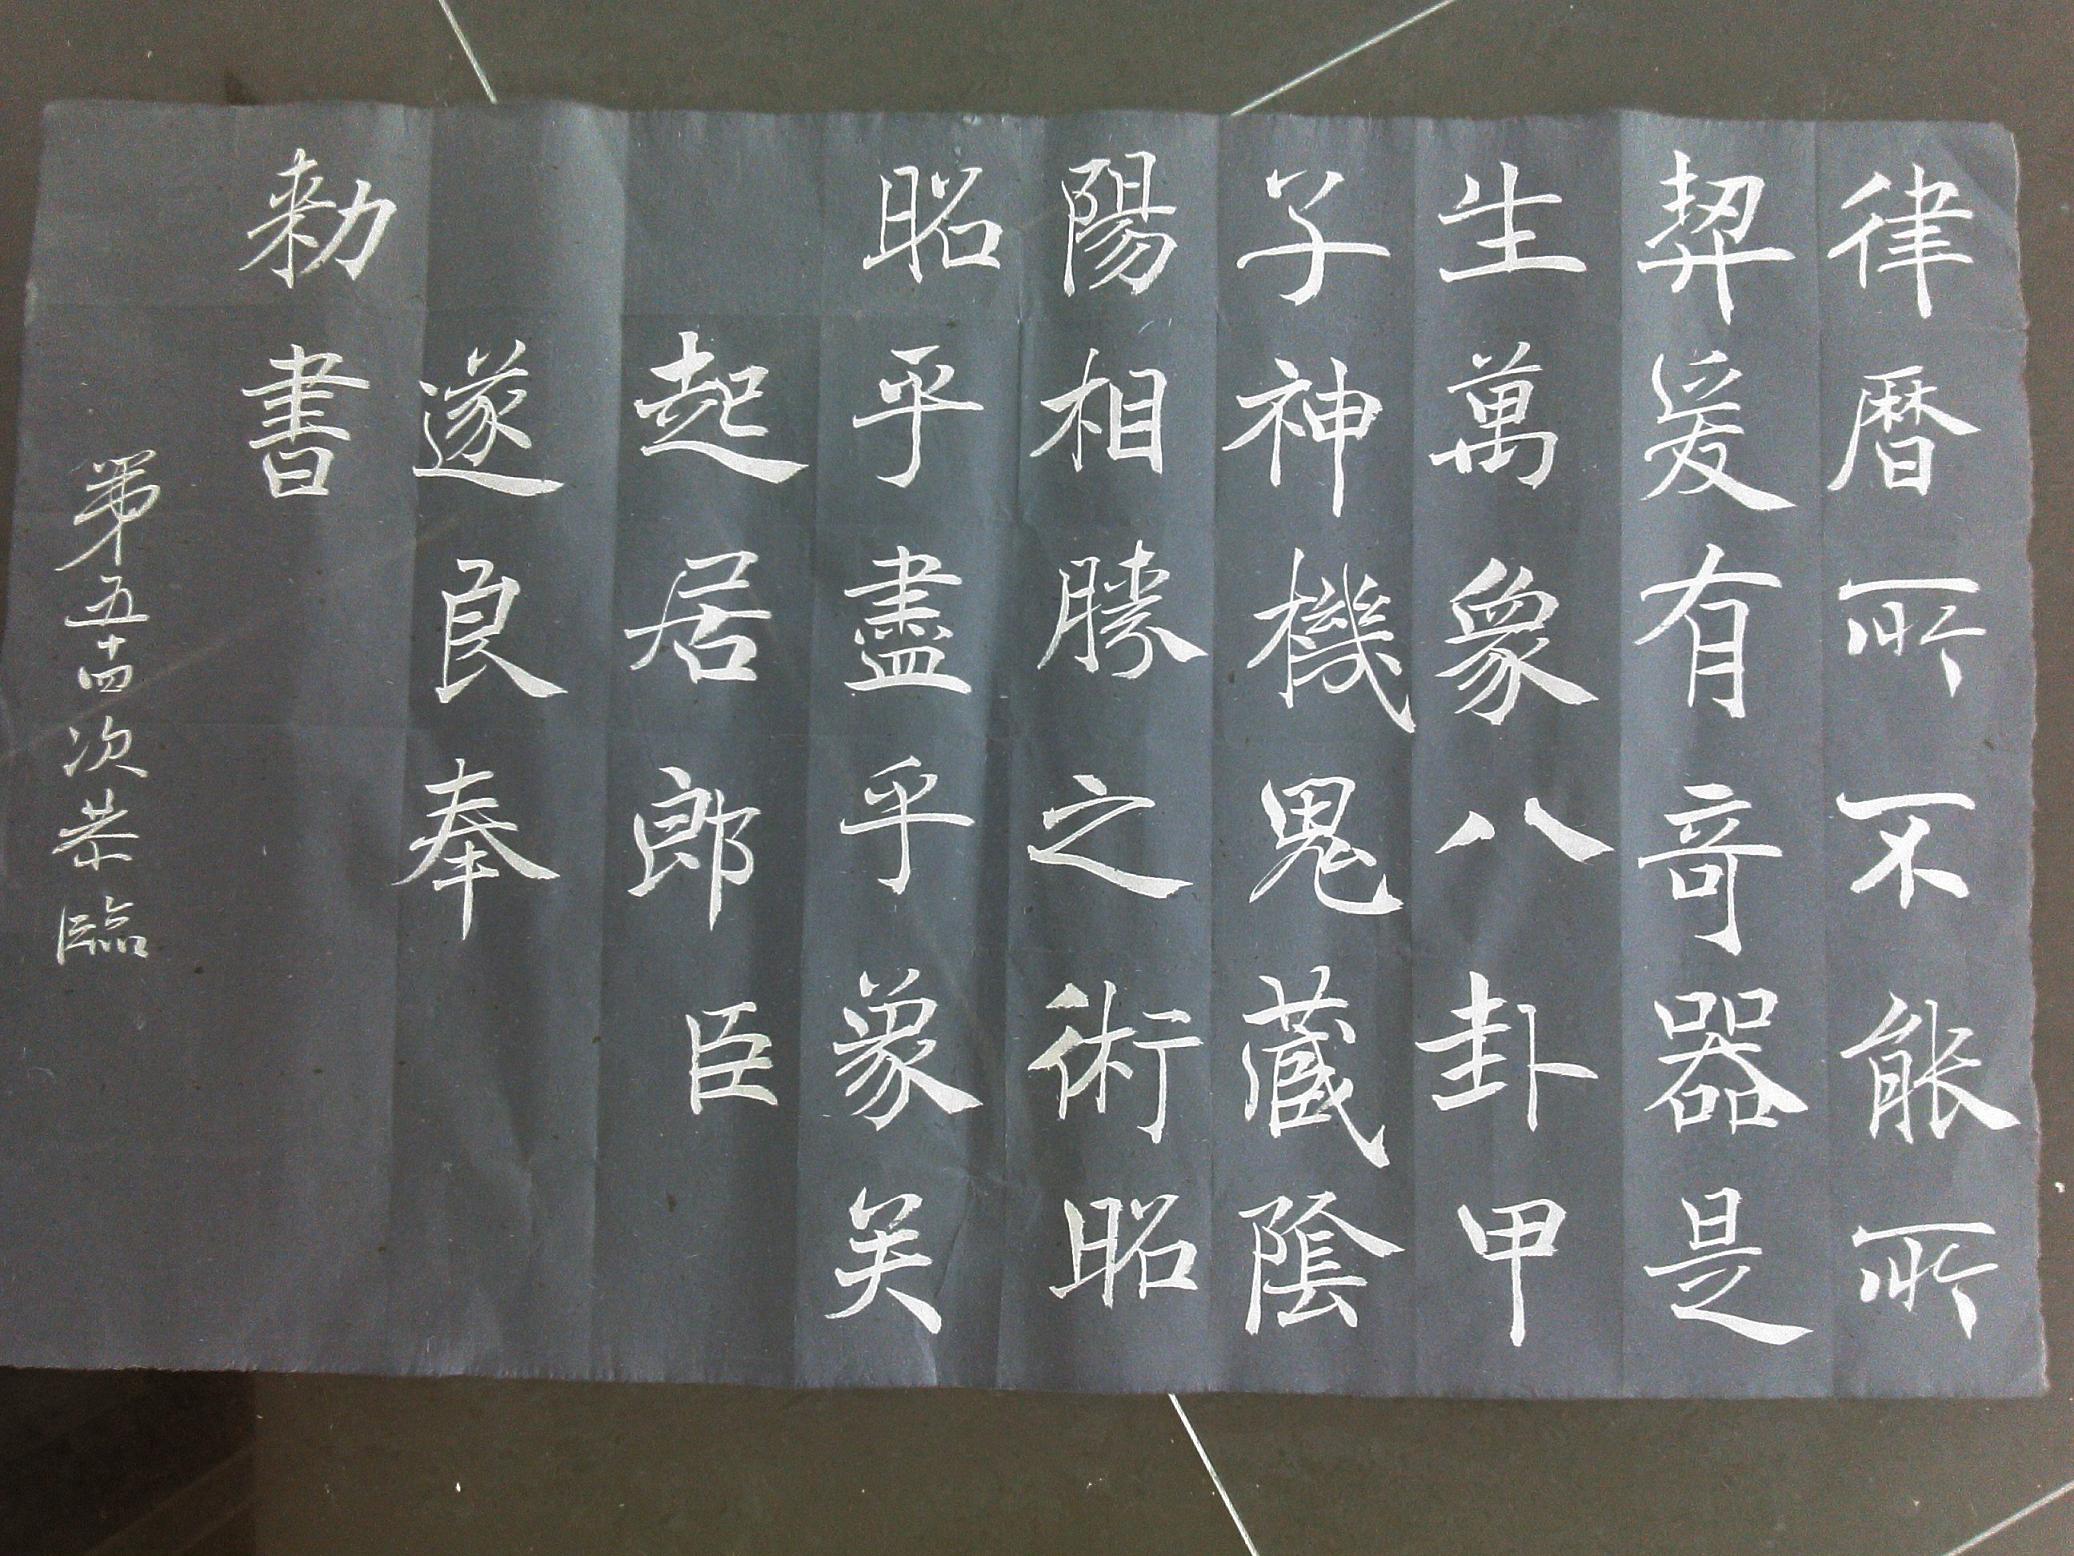 律曆所不能所
契爰有奇器是
生萬象八卦甲
子神機鬼藏陰
陽相勝之術昭
昭乎盡乎象矣
起居郎臣
遂良奉
勑書
第五十四次恭臨